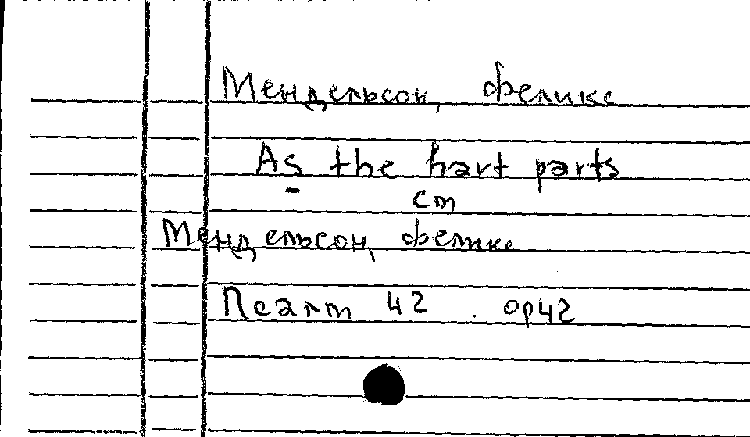 Мендельсон, Феликс
As the hart parts
см
Мендельсон, Феликс
Псалм 42 . op42